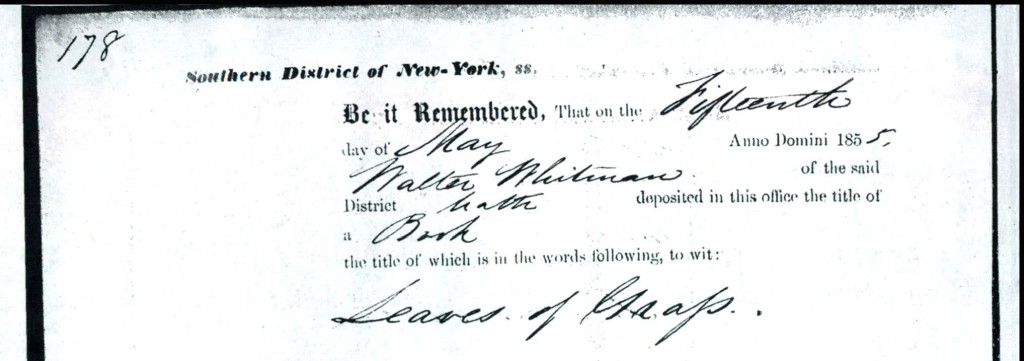 178
Southern District of New-York, ss.
Be it Remembered, That on the Fifteenth
day of May Anno Domini 1855,
Walter Whitman of the said
District hath deposited in this office the title of
a Book
the title of which is in the words following, to wit:
Leaves of Grass.